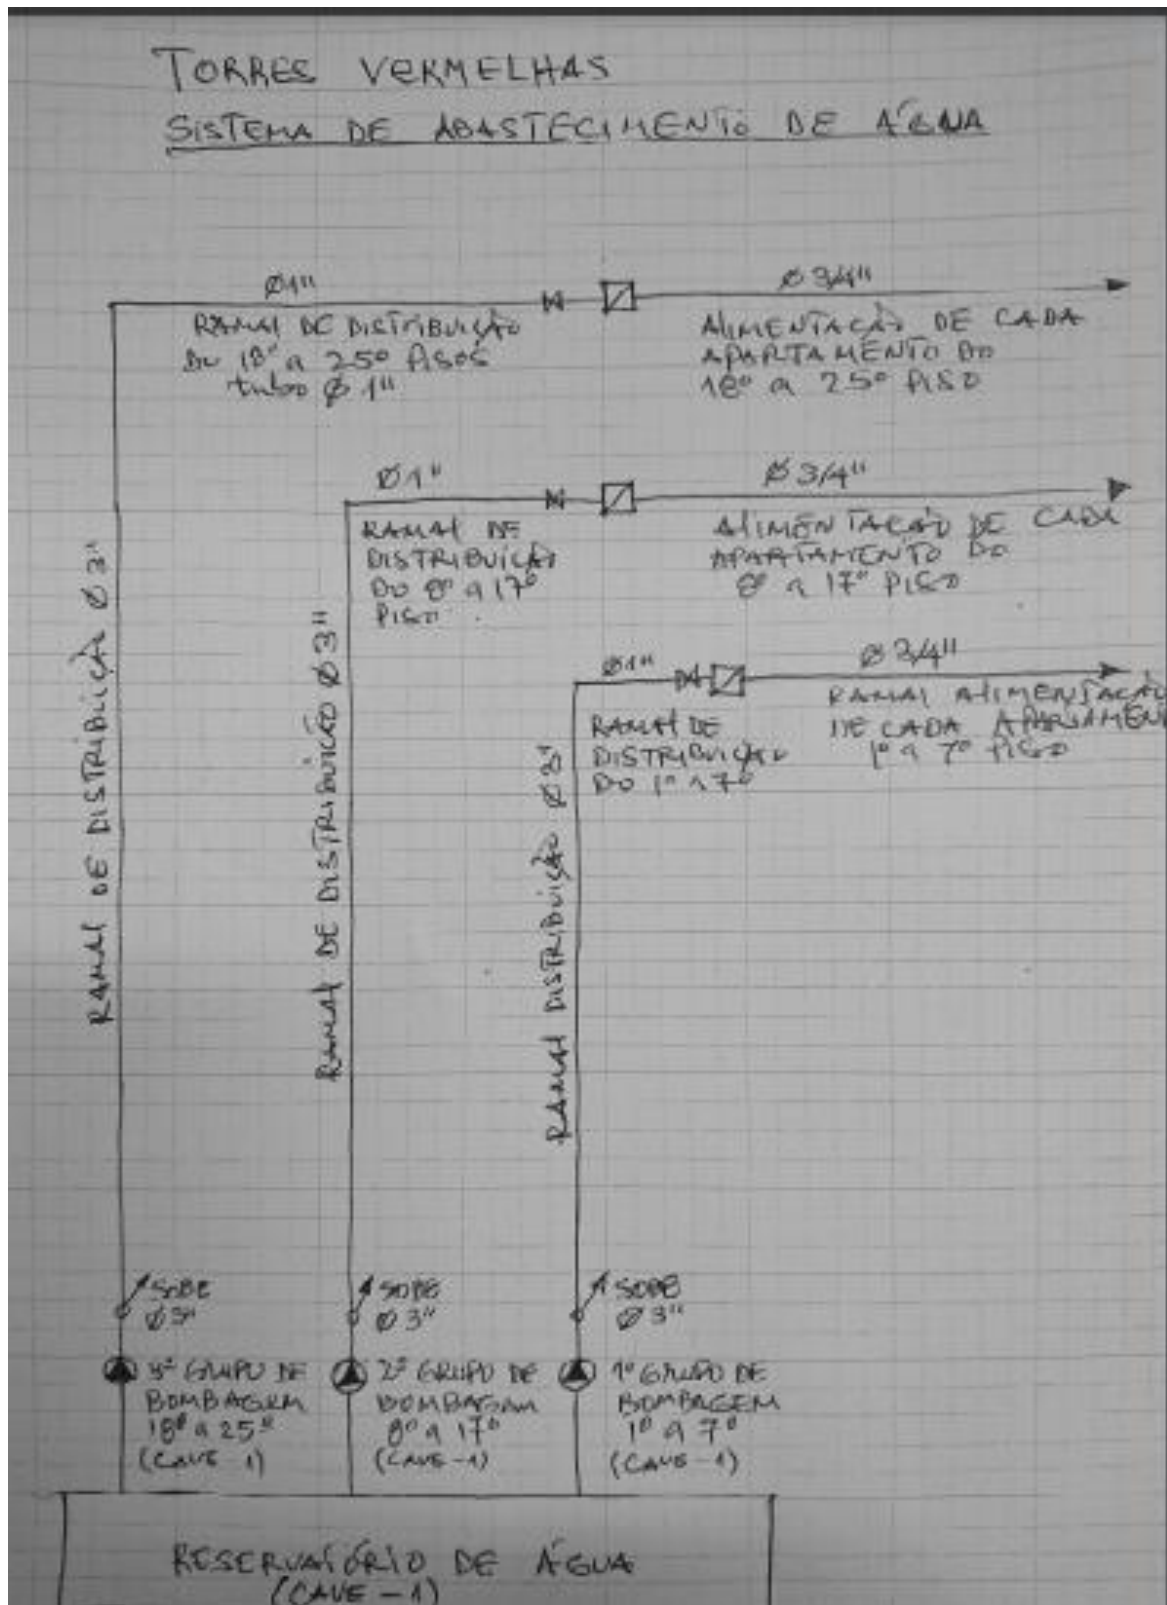 TORRES VERMELHAS
SISTEMA DE ABASTECIMENTO DE ÁGUA
Ø1"
Ø 3/4"
RAMAL DE DISTRIBUIÇÃO
DO 18º a 25º PISOS
tubo Ø 1"
ALIMENTAÇÃO DE CADA
APARTAMENTO DO
18º a 25º PISO
Ø1"
Ø 3/4"
RAMAL DE
DISTRIBUIÇÃO
DO 8º a 17º
PISO
ALIMENTAÇÃO DE CADA
APARTAMENTO DO
8º a 17º PISO
Ø1"
Ø 3/4"
RAMAL DE
DISTRIBUIÇÃO
DO 1º a 7º
RAMAL ALIMENTAÇÃO
DE CADA APARTAMEN
1º a 7º PISO
RAMAL DE DISTRIBUIÇÃO Ø 3"
RAMAL DE DISTRIBUIÇÃO Ø 3"
RAMAL DISTRIBUIÇÃO Ø 3"
SOBE
Ø3"
SOBE
Ø 3"
SOBE
Ø 3"
3º GRUPO DE
BOMBAGEM
18º a 25º
(CAVE -1)
2º GRUPO DE
BOMBAGEM
8º a 17º
(CAVE -1)
1º GRUPO DE
BOMBAGEM
1º a 7º
(CAVE -1)
RESERVATÓRIO DE ÁGUA
(CAVE -1)